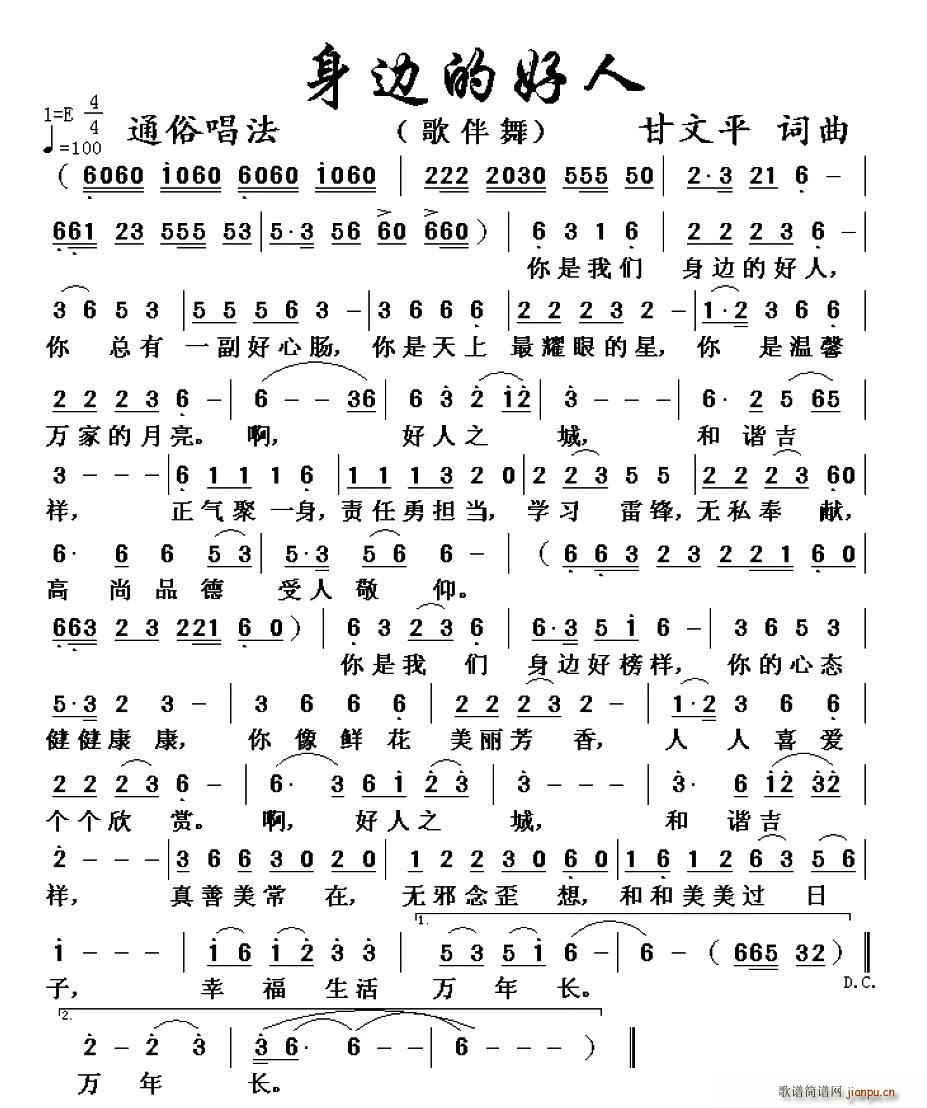 身边的好人
1=E 4/4
♩=100 通俗唱法 （歌伴舞） 甘文平 词曲
（ 6060 i060 6060 i060 | 222 2030 555 50 | 2·3 21 6 -
661 23 555 53 | 5·3 56 60 660 ） | 6 3 1 6 | 2 2 2 3 6 -
你是我们 身边的好人，
3 6 5 3 | 5 5 5 6 3 - | 3 6 6 6 | 2 2 2 3 2 - | 1·2 3 6 6
你 总有 一副好心肠， 你是天上 最耀眼的星， 你 是温馨
2 2 2 3 6 - | 6 - - 36 | 6 3 2 i2 | 3 - - - | 6· 2 5 65
万家的月亮。 啊， 好人之 城， 和 谐吉
3 - - - | 6 1 1 1 6 | 1 1 1 3 2 0 | 2 2 3 5 5 | 2 2 2 3 60
样， 正气聚一身， 责任勇担当， 学习 雷锋， 无私奉 献，
6· 6 6 5 3 | 5·3 5 6 6 - | （ 6 6 3 2 3 2 2 1 6 0
高 尚品德 受人敬 仰。
663 2 3 221 6 0 ） | 6 3 2 3 6 | 6·3 5 i 6 - | 3 6 5 3
你是我 们 身边好榜样， 你的心态
5·3 2 3 - | 3 6 6 6 | 2 2 2 3 2 - | 1·2 3 6 6
健健康 康， 你 像鲜 花 美丽芳 香， 人 人喜爱
2 2 2 3 6 - | 6· 3 6 i 2 3 | 2 - - - | 3· 6 i2 32
个个欣 赏。 啊， 好人之 城， 和 谐吉
2 - - - | 3 6 6 3 0 2 0 | 1 2 2 3 0 6 0 | 1 6 1 2 6 3 5 6
样， 真善美常 在， 无邪念歪 想， 和和美美过 日
1.
i - - - | i 6 i 2 3 3 | 5 3 5 i 6 - | 6 - （ 665 32 ） ‖
子， 幸 福 生活 万 年 长。 D.C.
2.
2 - 2 3 | 3 6· 6 - | 6 - - - ） ‖
万 年 长。
歌谱简谱网 jianpu.cn